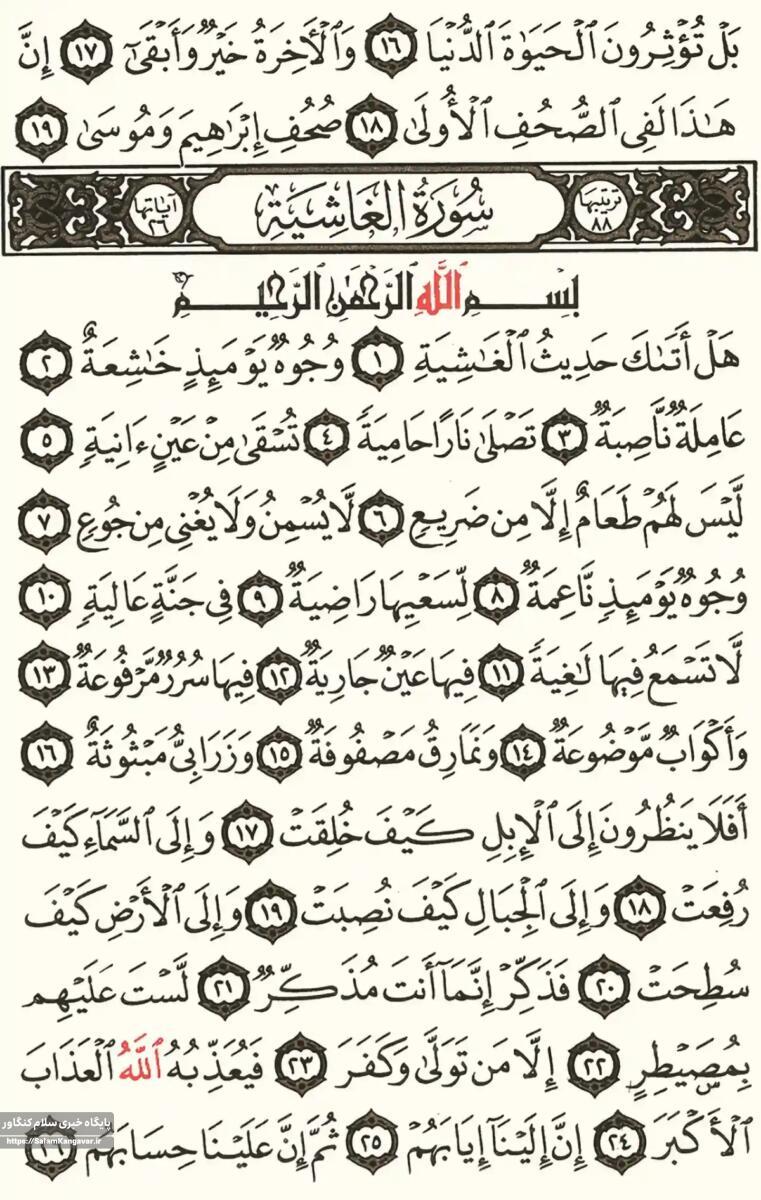 بَلْ تُؤْثِرُونَ ٱلْحَيَوٰةَ ٱلدُّنْيَا ١٦ وَٱلْأَخِرَةُ خَيْرٌ وَأَبْقَىٰٓ ١٧ إِنَّ
هَـٰذَا لَفِى ٱلصُّحُفِ ٱلْأُولَىٰ ١٨ صُحُفِ إِبْرَٰهِيمَ وَمُوسَىٰ ١٩
ترتيبها ٨٨ سُورَةُ الغَاشِيَةِ آياتها ٢٦
بِسْمِ ٱللَّهِ ٱلرَّحْمَـٰنِ ٱلرَّحِيمِ
هَلْ أَتَىٰكَ حَدِيثُ ٱلْغَـٰشِيَةِ ١ وُجُوهٌ يَوْمَئِذٍ خَـٰشِعَةٌ ٢
عَامِلَةٌ نَّاصِبَةٌ ٣ تَصْلَىٰ نَارًا حَامِيَةً ٤ تُسْقَىٰ مِنْ عَيْنٍ ءَانِيَةٍ ٥
لَّيْسَ لَهُمْ طَعَامٌ إِلَّا مِن ضَرِيعٍ ٦ لَّا يُسْمِنُ وَلَا يُغْنِى مِن جُوعٍ ٧
وُجُوهٌ يَوْمَئِذٍ نَّاعِمَةٌ ٨ لِّسَعْيِهَا رَاضِيَةٌ ٩ فِى جَنَّةٍ عَالِيَةٍ ١٠
لَّا تَسْمَعُ فِيهَا لَـٰغِيَةً ١١ فِيهَا عَيْنٌ جَارِيَةٌ ١٢ فِيهَا سُرُرٌ مَّرْفُوعَةٌ ١٣
وَأَكْوَابٌ مَّوْضُوعَةٌ ١٤ وَنَمَارِقُ مَصْفُوفَةٌ ١٥ وَزَرَابِىُّ مَبْثُوثَةٌ ١٦
أَفَلَا يَنظُرُونَ إِلَى ٱلْإِبِلِ كَيْفَ خُلِقَتْ ١٧ وَإِلَى ٱلسَّمَآءِ كَيْفَ
رُفِعَتْ ١٨ وَإِلَى ٱلْجِبَالِ كَيْفَ نُصِبَتْ ١٩ وَإِلَى ٱلْأَرْضِ كَيْفَ
سُطِحَتْ ٢٠ فَذَكِّرْ إِنَّمَآ أَنتَ مُذَكِّرٌ ٢١ لَّسْتَ عَلَيْهِم
بِمُصَۜيْطِرٍ ٢٢ إِلَّا مَن تَوَلَّىٰ وَكَفَرَ ٢٣ فَيُعَذِّبُهُ ٱللَّهُ ٱلْعَذَابَ
ٱلْأَكْبَرَ ٢٤ إِنَّ إِلَيْنَآ إِيَابَهُمْ ٢٥ ثُمَّ إِنَّ عَلَيْنَا حِسَابَهُمْ ٢٦
پایگاه خبری سلام کنگاور
https://SalamKangavar.ir